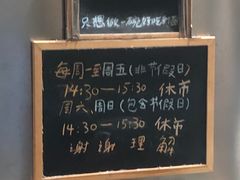 只想做一碗好吃的面
每周一至周五(非节假日)
14:30—15:30 休市
周六、周日(包含节假日)
14:30—15:30 休市
谢谢理解